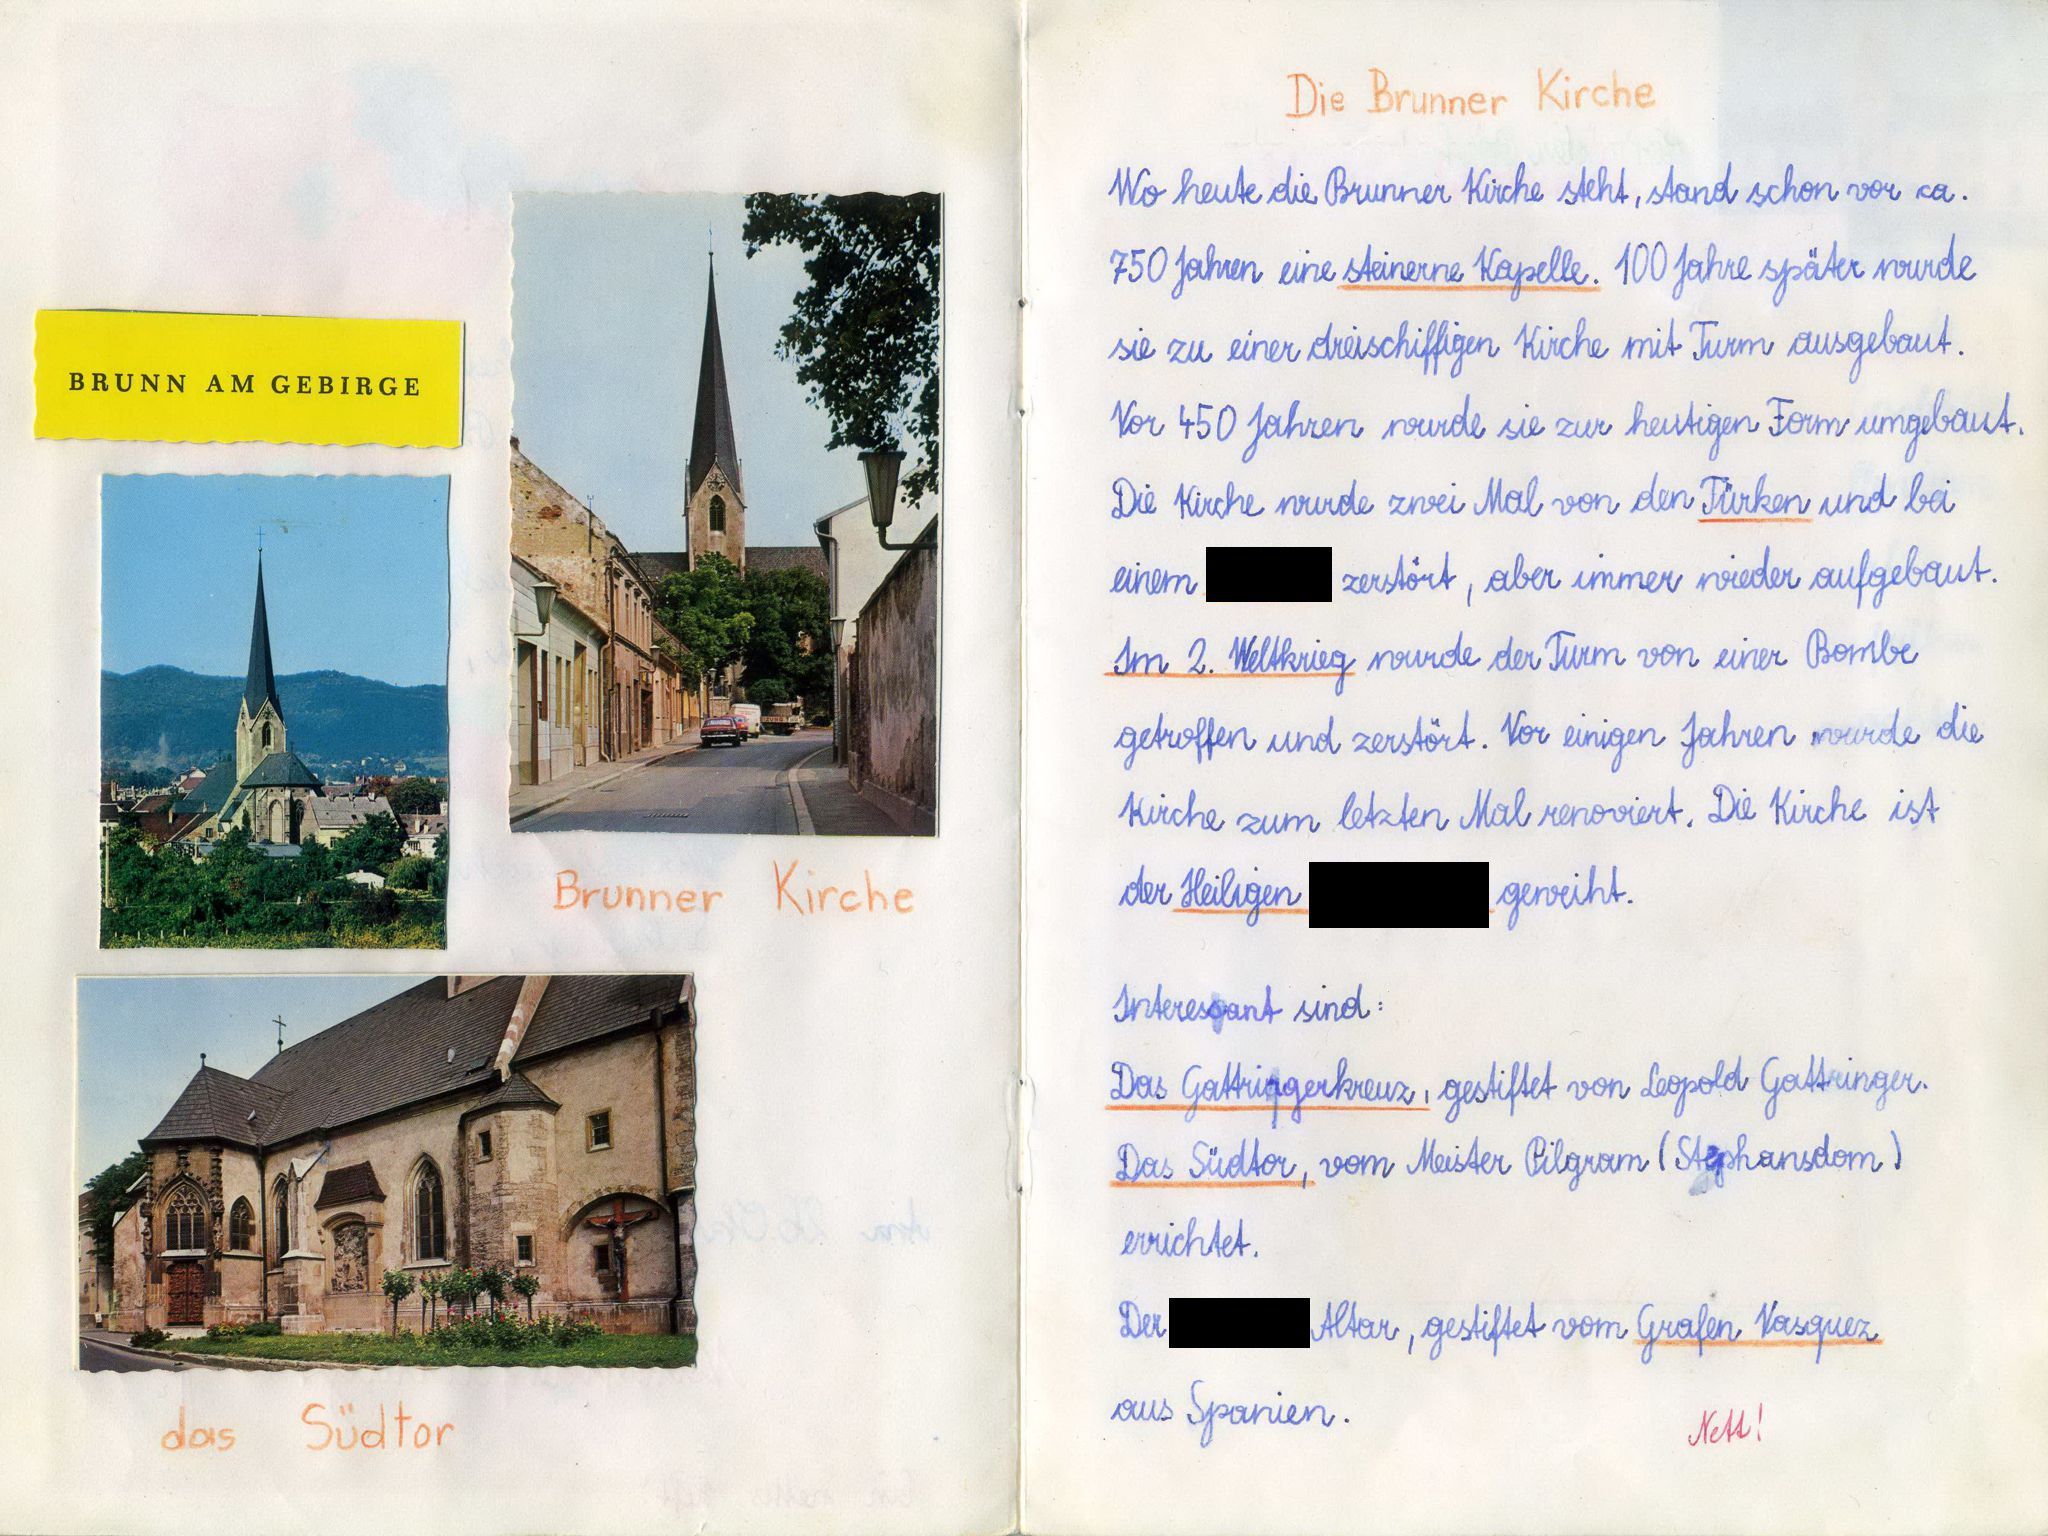 BRUNN AM GEBIRGE
Brunner Kirche
das Südtor
Die Brunner Kirche
Wo heute die Brunner Kirche steht, stand schon vor ca.
750 Jahren eine steinerne Kapelle. 100 Jahre später wurde
sie zu einer dreischiffigen Kirche mit Turm ausgebaut.
Vor 450 Jahren wurde sie zur heutigen Form umgebaut.
Die Kirche wurde zwei Mal von den Türken und bei
einem zerstört, aber immer wieder aufgebaut.
Im 2. Weltkrieg wurde der Turm von einer Bombe
getroffen und zerstört. Vor einigen Jahren wurde die
Kirche zum letzten Mal renoviert. Die Kirche ist
der Heiligen geweiht.
Interessant sind:
Das Gattringerkreuz, gestiftet von Leopold Gattringer.
Das Südtor, vom Meister Pilgram (Stephansdom)
errichtet.
Der Altar, gestiftet vom Grafen Vasquez
aus Spanien.
Nett!